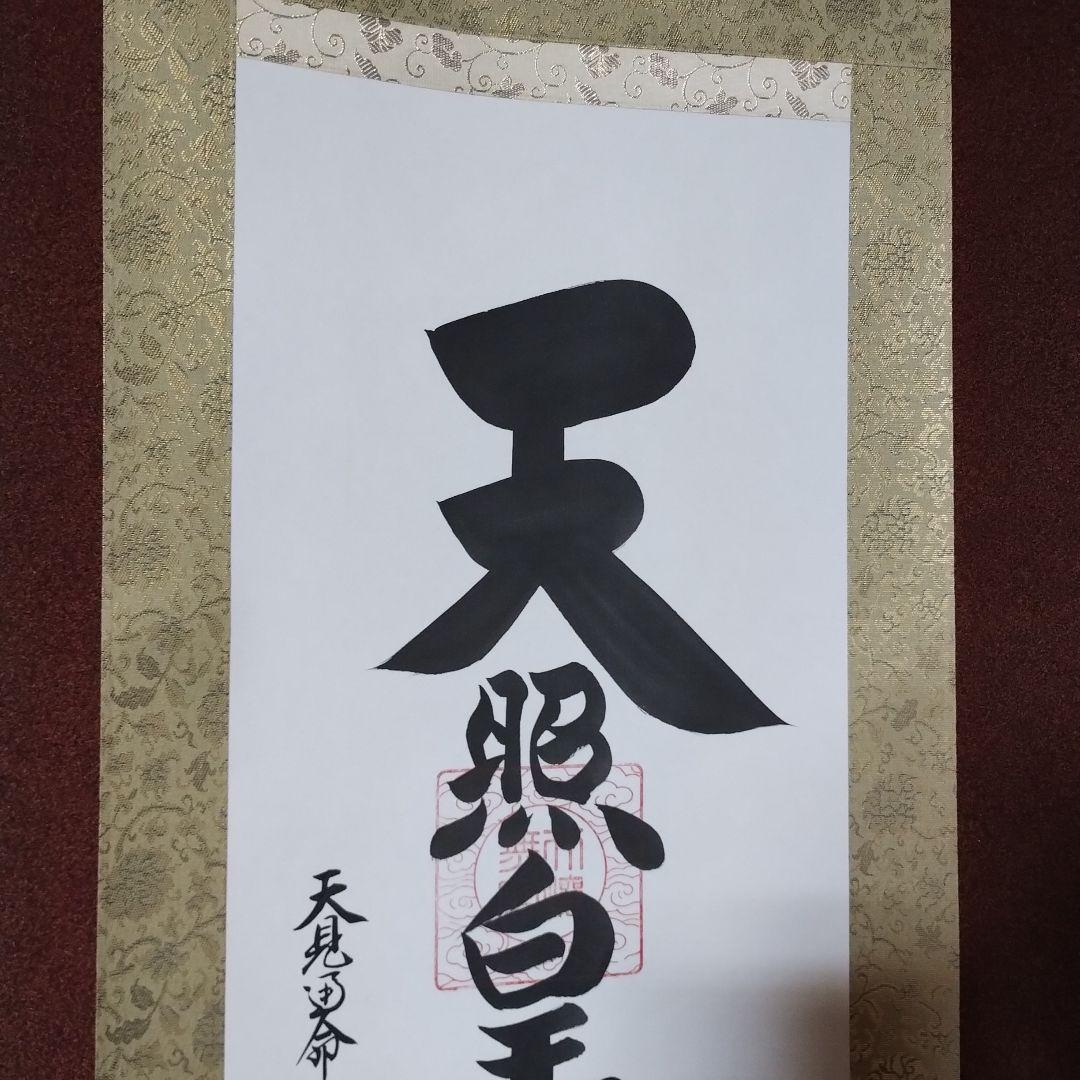 天照皇
天見通命